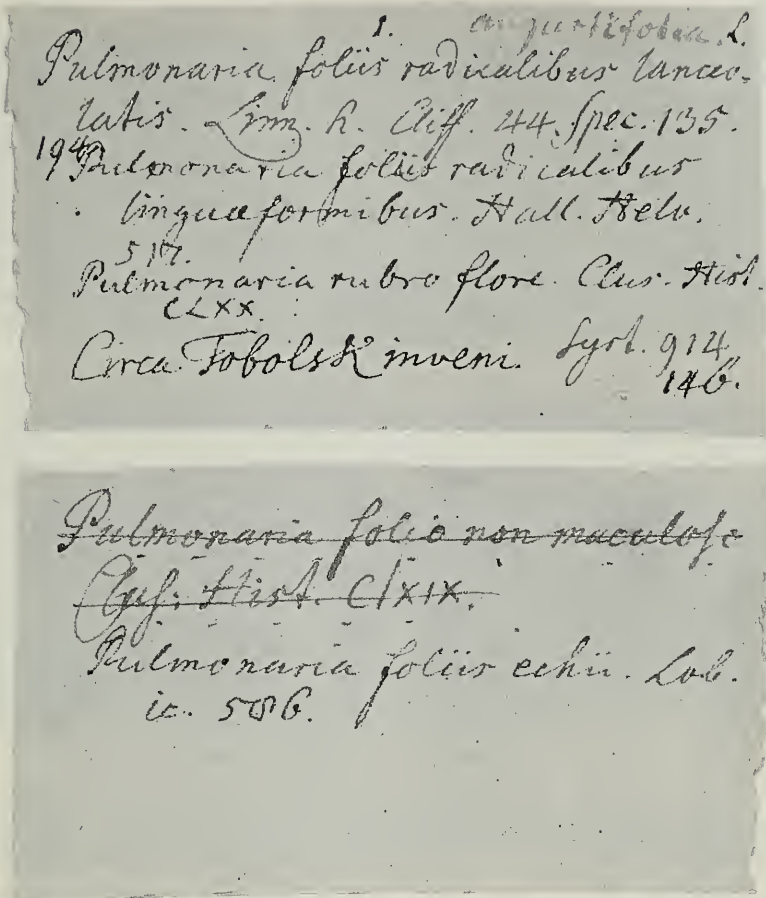 1. angustifolia. L.
Pulmonaria foliis radicalibus lanceo-
latis. Linn. h. Cliff. 44. Spec. 135.
194 Pulmonaria foliis radicalibus
linguæformibus. Hall. Helv.
517.
Pulmonaria rubro flore. Clus. Hist.
CLXX.
Circa Tobolsk inveni. Syst. 914
146.
Pulmonaria folio non maculoso
Clus. Hist. CLXIX.
Pulmonaria foliis echii. Lob.
ic. 586.